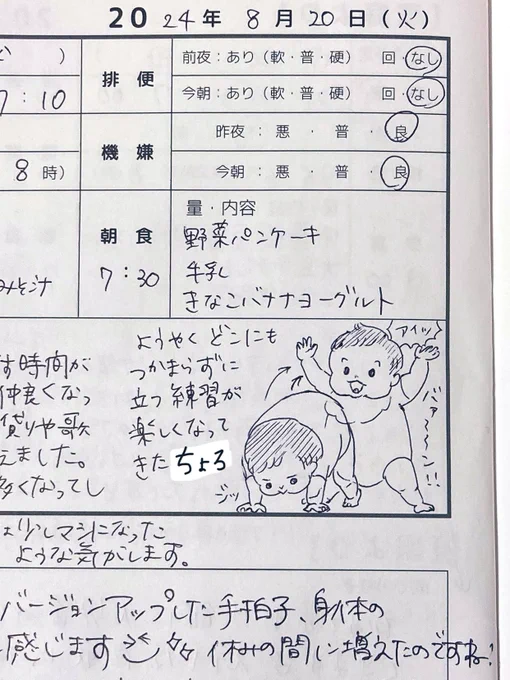 2024年 8月20日(火)
)
排便
前夜：あり（軟・普・硬） 回・なし
今朝：あり（軟・普・硬） 回・なし
7:10
機嫌
昨夜：悪・普・良
今朝：悪・普・良
8時)
朝食
7:30
量・内容
野菜パンケーキ
牛乳
きなこバナナヨーグルト
みそ汁
す時間が
仲良くなっ
貸りや歌
えました。
多くなってし
ようやくどこにも
つかまらずに
立つ練習が
楽しくなって
きた ちょろ
アイッ
バァ〜〜ン!!
ジッ
少しマシになった
ような気がします。
バージョンアップした手拍子、身体の
感じます 休みの間に増えたのですね!